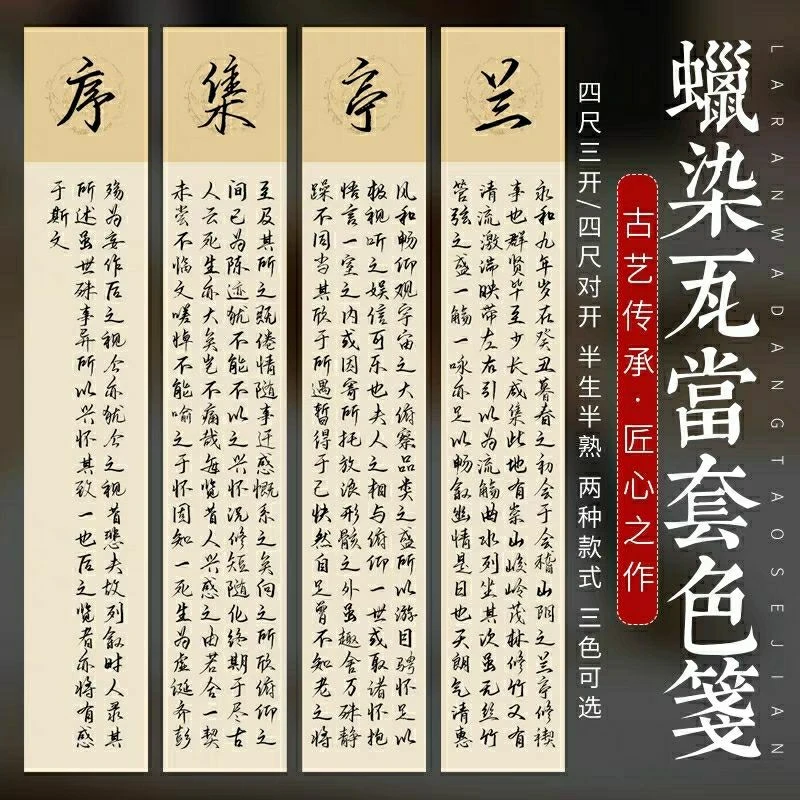 蠟染瓦當套色箋
LARANWADANGTAOSEJIAN
古艺传承·匠心之作
四尺三开/四尺对开 半生半熟 两种款式 三色可选
兰
永和九年岁在癸丑暮春之初会于会稽山阴之兰亭修禊
事也群贤毕至少长咸集此地有崇山峻岭茂林修竹又有
清流激湍映带左右引以为流觞曲水列坐其次虽无丝竹
管弦之盛一觞一咏亦足以畅叙幽情是日也天朗气清惠
亭
风和畅仰观宇宙之大俯察品类之盛所以游目骋怀足以
极视听之娱信可乐也夫人之相与俯仰一世或取诸怀抱
悟言一室之内或因寄所托放浪形骸之外虽趣舍万殊静
躁不同当其欣于所遇暂得于己快然自足曾不知老之将
集
至及其所之既倦情随事迁感慨系之矣向之所欣俯仰之
间已为陈迹犹不能不以之兴怀况修短随化终期于尽古
人云死生亦大矣岂不痛哉每览昔人兴感之由若合一契
未尝不临文嗟悼不能喻之于怀固知一死生为虚诞齐彭
序
殇为妄作后之视今亦犹今之视昔悲夫故列叙时人录其
所述虽世殊事异所以兴怀其致一也后之览者亦将有感
于斯文